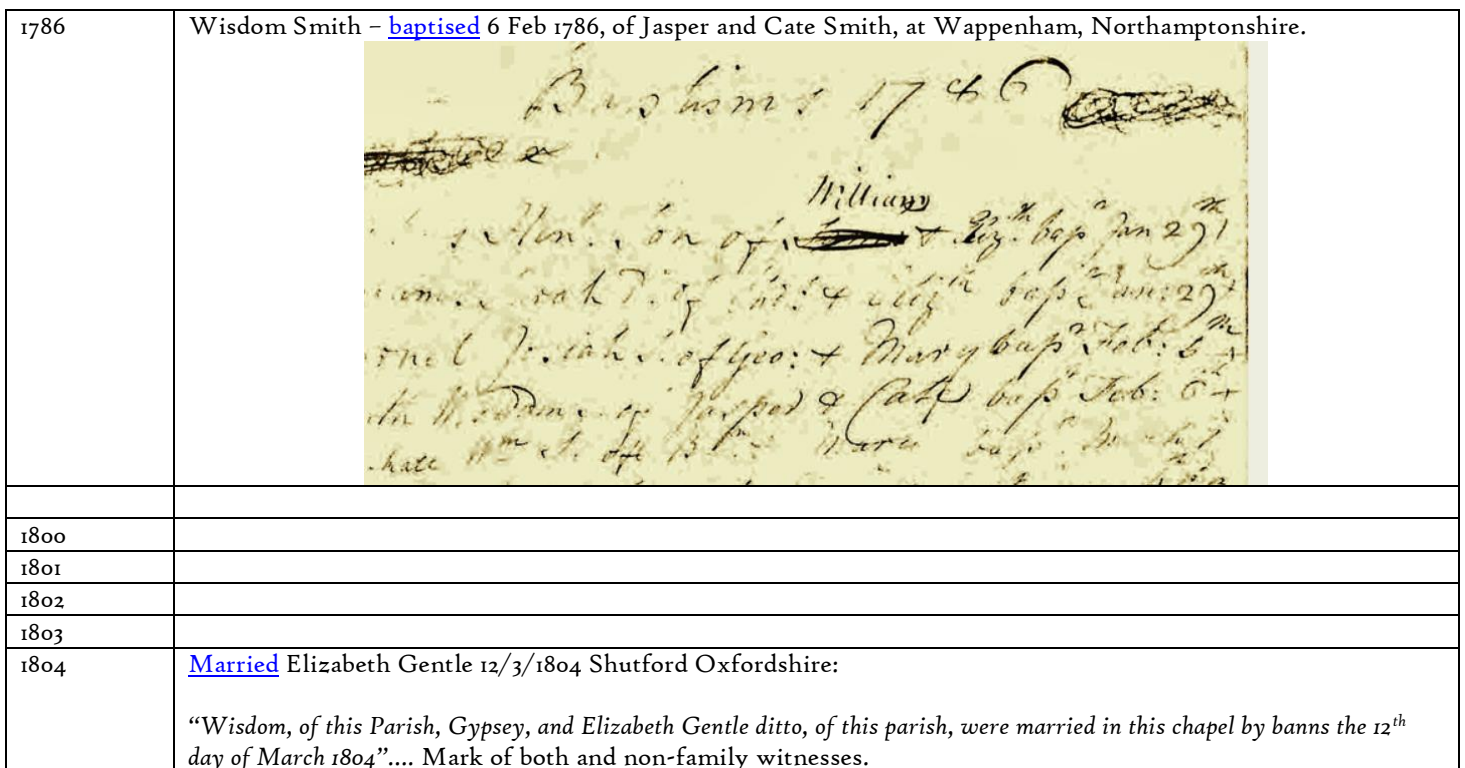 1786 Wisdom Smith – baptised 6 Feb 1786, of Jasper and Cate Smith, at Wappenham, Northamptonshire.
17
William
on of + Eliz.th bap.d Jan 29th
bap.d Jan: 29th
Josiah S. of Geo: + Mary bap.d Feb: 6th
Jasper & Cate bap.d Feb: 6th
hate Wm S. of
1800
1801
1802
1803
1804 Married Elizabeth Gentle 12/3/1804 Shutford Oxfordshire:
“Wisdom, of this Parish, Gypsey, and Elizabeth Gentle ditto, of this parish, were married in this chapel by banns the 12th
day of March 1804”.... Mark of both and non-family witnesses.